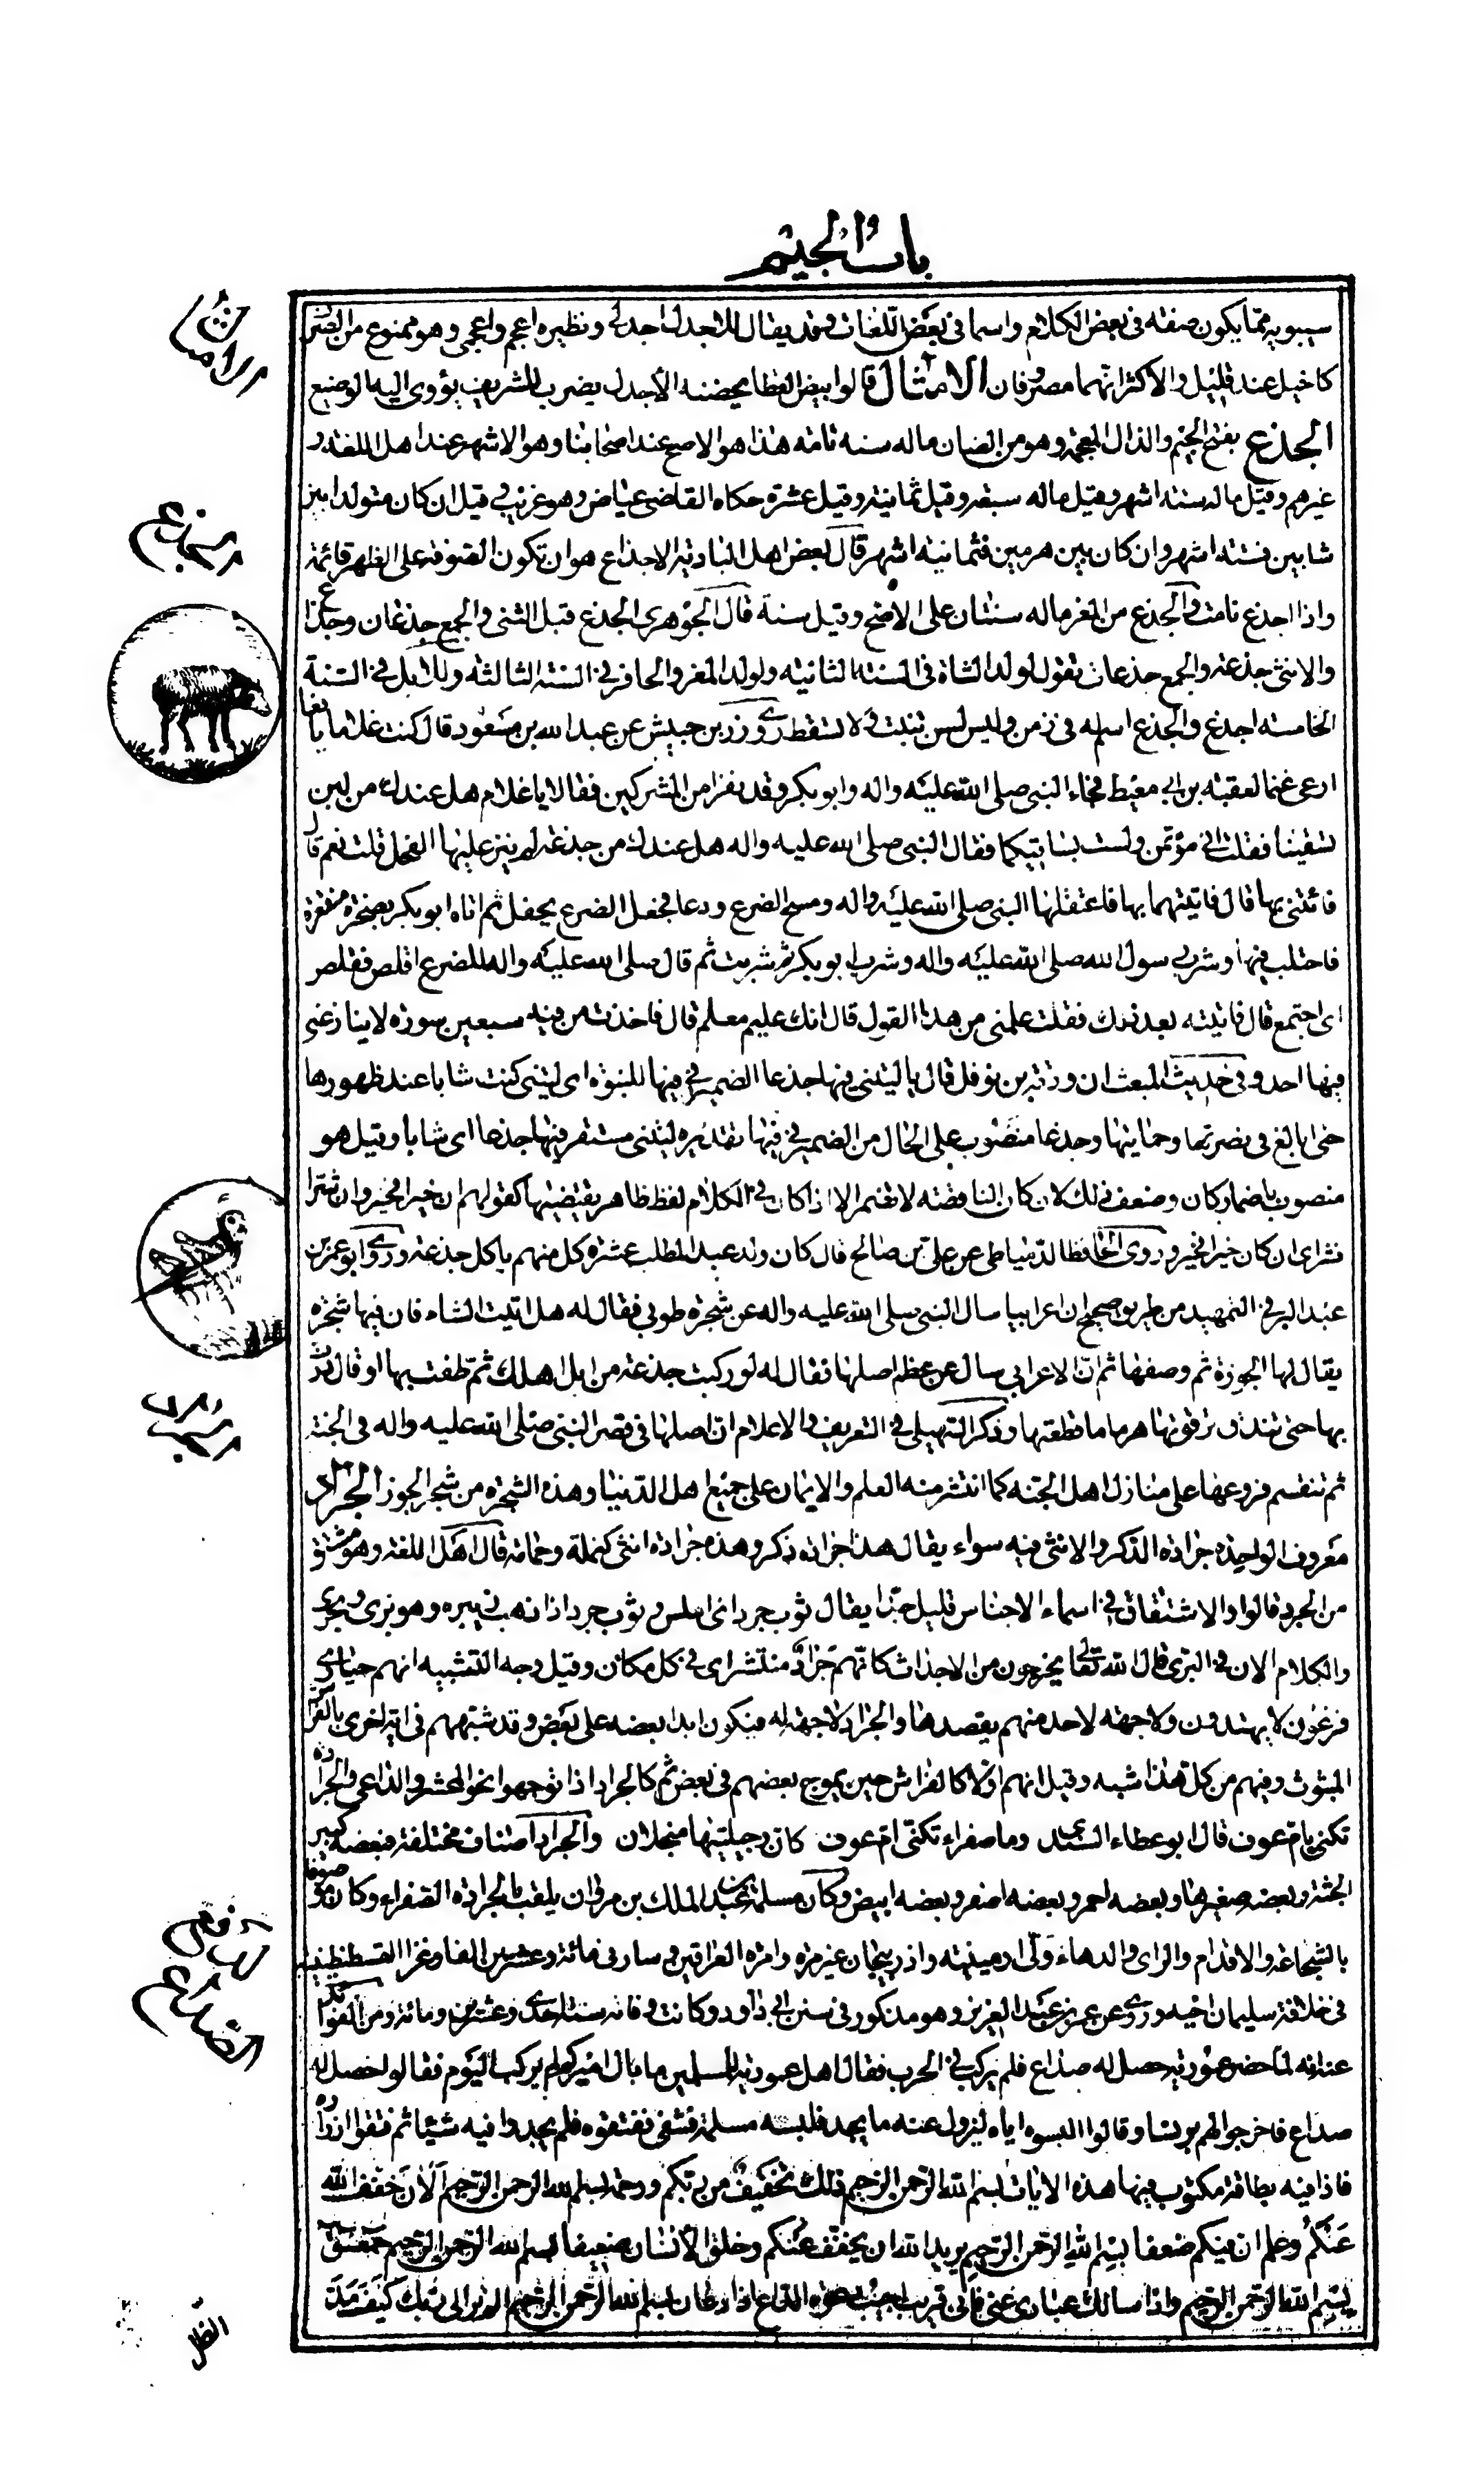 باب الجيم
سيبويه مما يكون صفة فى بعض الكلام واسما فى بعض اللغات وقد يقال للاجدل اجدلى ونظيره اعجم واعجمى وهو ممنوع من الصرف
كاخيل عند قليل والاكثر انهما مصروفان الامثال قالوا بيض القطا يحضنه الأجدل يضرب للشريف يؤوى اليه الوضيع
الجذع بفتح الجيم والذال المعجمة وهو من الضان ماله سنه تامه هذا هو الاصح عند اصحابنا وهو الاشهر عند اهل اللغة و
غيرهم وقيل ماله سته اشهر وقيل ماله سبعه وقيل ثمانية وقيل عشرة حكاه القاضى عياض وهو غريب وقيل ان كان متولدا بين
شابين فسته اشهر وان كان بين هرمين فثمانية اشهر قال بعض اهل البادية الاجذاع هو ان تكون الصوفة على الظهر قائمة
واذا اجذع نامت والجذع من المعز ماله سنتان على الاصح وقيل سنة قال الجوهرى الجذع قبل الثنى والجمع جذعان وجذاع
والانثى جذعة والجمع جذعات تقول لولد الشاة فى السنة الثانية ولولد المعز والحافر فى السنة الثالثة وللابل فى السنة
الخامسة اجذع والجذع اسم له فى زمن وليس لسن تنبت ولا تسقط روى زر بن حبيش عن عبد الله بن مسعود قال كنت غلاما يافعا
ارعى غنما لعقبة بن ابى معيط فجاء النبى صلى الله عليه واله وابو بكر وقد نفرا من المشركين فقالا يا غلام هل عندك من لبن
تسقينا فقلت انى مؤتمن ولست بساقيكما فقال النبى صلى الله عليه واله هل عندك من جذعة لم ينز عليها الفحل قلت نعم قال
فائتنى بها قال فاتيتهما بها فاعتقلها النبى صلى الله عليه واله ومسح الضرع ودعا فجفل الضرع يحفل ثم اتاه ابو بكر بصخرة منقعرة
فاحتلب فيها وشرب رسول الله صلى الله عليه واله وشرب ابو بكر ثم شربت ثم قال صلى الله عليه واله للضرع اقلص فقلص
اى اجتمع قال فاتيته بعد ذلك فقلت علمنى من هذا القول قال انك عليم معلم قال فاخذت من فيه سبعين سورة لا ينازعنى
فيها احد وفى حديث المبعث ان ورقة بن نوفل قال يا ليتنى فيها جذعا الضمير فى فيها للنبوة اى ليتنى كنت شابا عند ظهورها
حتى ابالغ فى نصرتها وحمايتها وجذعا منصوب على الحال من الضمير فى فيها تقديره ليتنى مستقر فيها جذعا اى شابا وقيل هو
منصوب باضمار كان وضعف ذلك لان كان الناقصة لا تضمر الا اذا كان فى الكلام لفظ ظاهر يقتضيها كقولهم ان خيرا فخير وان شرا
فشر اى ان كان خيرا فخير وروى الحافظ الدمياطى عن على بن صالح قال كان ولد عبد المطلب عشرة كل منهم ياكل جذعة وروى ابو عمر بن
عبد البر فى التمهيد من طريق صحيح ان اعرابيا سال النبى صلى الله عليه واله عن شجرة طوبى فقال له هل اتيت الشام فان فيها شجرة
يقال لها الجوزة ثم وصفها ثم ان الاعرابى سال عن عظم اصلها فقال له لو ركبت جذعة من ابل اهلك ثم طفت بها او قال درت
بها حتى تندق ترقوتها هرما ما قطعتها وذكر السهيلى فى التعريف والاعلام ان اصلها فى قصر النبى صلى الله عليه واله فى الجنة
ثم تنقسم فروعها على منازل اهل الجنة كما انتشر منه العلم والايمان على جميع اهل الدنيا وهذه الشجرة من شجر الجوز الجراد
معروف الواحدة جرادة الذكر والانثى فيه سواء يقال هذا جرادة ذكر وهذه جرادة انثى كنملة وحمامة قال اهل اللغة وهو مشتق
من الجرد قالوا والاشتقاق فى اسماء الاجناس قليل جدا يقال ثوب جرد اى املس وثوب جرد اذا ذهب زئبره وهو برى وبحرى
والكلام الان فى البرى قال الله تعالى يخرجون من الاجداث كانهم جراد منتشر اى فى كل مكان وقيل وجه التشبيه انهم حيارى
فزعون لا يهتدون ولا جهة لاحد منهم يقصدها والجراد لا جهة له فيكون ابدا بعضه على بعض وقد شبههم فى اية اخرى بالفراش
المبثوث وفيهم من كل هذا شبه وقيل انهم اولا كالفراش حين يموج بعضهم فى بعض ثم كالجراد اذا توجهوا نحو المحشر والداعى والجرادة
تكنى بام عوف قال ابو عطاء السندى وما صفراء تكنى ام عوف كان رجيلتيها منجلان والجراد اصناف مختلفة فبعضه كبير
الجثة وبعضه صغيرها وبعضه احمر وبعضه اصفر وبعضه ابيض وكان مسلمة بن عبد الملك بن مروان يلقب بالجرادة الصفراء وكان موصوفا
بالشجاعة والاقدام والراى والدهاء ولى ارمينية واذربيجان غير مرة وامرة العراقين وسار فى مائة وعشرين الفا وغزا القسطنطينية
فى خلافة سليمان اخيه وروى عن عمر بن عبد العزيز وهو مذكور فى سنن ابى داود وكانت وفاته سنة احدى وعشرين ومائة ومن الفوائد
عنه انه لما حضر عمورية حصل له صداع فلم يركب فى الحرب فقال اهل عمورية للمسلمين ما بال اميركم لم يركب اليوم فقالوا حصل له
صداع فاخرجوا لهم برنسا وقالوا البسوه اياه ليزول عنه ما يجد فلبسه مسلمة فشفى ففتقوه فلم يجدوا فيه شيئا ثم فتقوا ازراره
فاذا فيه بطاقة مكتوب فيها هذه الايات بسم الله الرحمن الرحيم ذلك تخفيف من ربكم ورحمة بسم الله الرحمن الرحيم الان خفف الله
عنكم وعلم ان فيكم ضعفا بسم الله الرحمن الرحيم يريد الله ان يخفف عنكم وخلق الانسان ضعيفا بسم الله الرحمن الرحيم حمعسق
بسم الله الرحمن الرحيم واذا سالك عبادى عنى فانى قريب اجيب دعوة الداع اذا دعان بسم الله الرحمن الرحيم الم تر الى ربك كيف مد
الامثال
الجذع
الجراد
الصداع
الظل